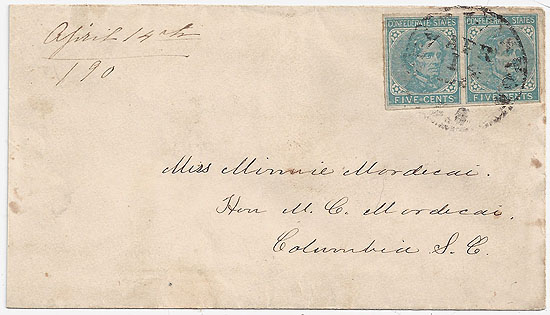 April 14th
190
CONFEDERATE STATES CONFEDERATE STATES
FIVE CENTS FIVE CENTS
Miss Minnie Mordecai.
Hon M. C. Mordecai.
Columbia S. C.